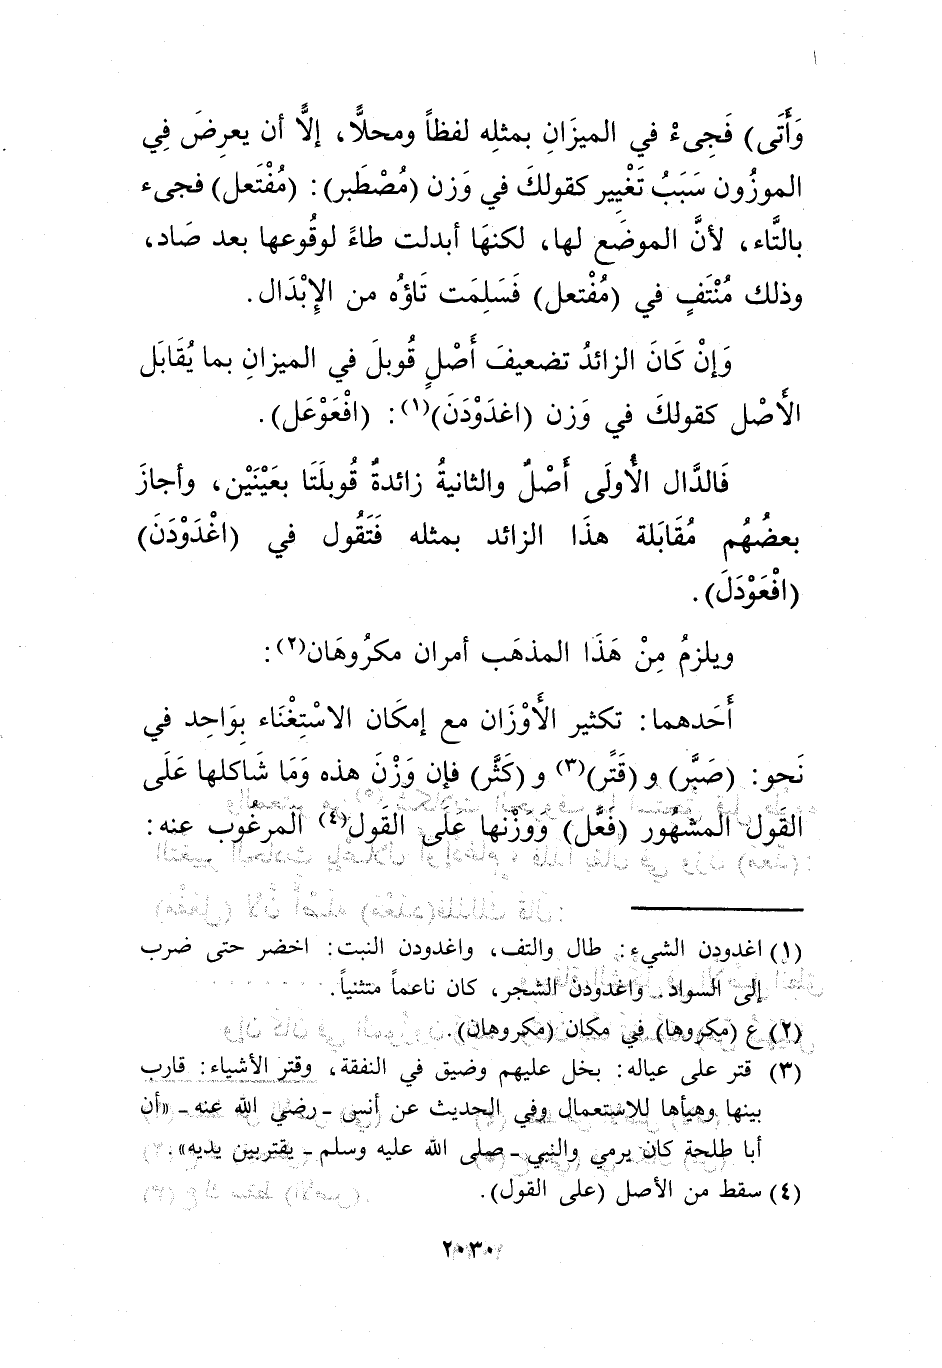 وَأَتَى) فَجِىءْ في الميزَانِ بمثلِه لفظاً ومحلاًّ، إلاَّ أن يعرِضَ فِي
الموزُون سَبَبُ تَغْيِير كقولكَ في وَزن (مُصْطَبر): (مُفْتَعل) فجىء
بالتَّاء، لأنَّ الموضَع لها، لكنهَا أبدلت طاءً لوقُوعها بعد صَاد،
وذلك مُنْتَفٍ في (مُفْتعل) فَسَلِمَت تَاؤُه من الإِبْدَال.
وَإنْ كَانَ الزائدُ تضعيفَ أَصْلٍ قُوبلَ في الميزانِ بما يُقَابَل
الأَصْل كقولكَ في وَزن (اغدَوْدَنَ)(١): (افْعَوْعَل).
فَالدَّال الأُولَى أَصْلٌ والثانيةُ زائدةٌ قُوبلَتَا بعَيْنَيْن، وأجازَ
بعضُهُم مُقَابَلة هذَا الزائد بمثله فَتَقُول في (اغْدَوْدَنَ)
(افْعَوْدَلَ).
ويلزمُ مِنْ هَذَا المذهَب أمران مكرُوهَان(٢):
أَحَدهما: تكثير الأَوْزَان مع إمكَان الاسْتِغْنَاء بِوَاحِد في
نَحو: (صَبَّر) و (قَتَّر)(٣) و (كَثَّر) فإن وَزْنَ هذه وَمَا شَاكلها عَلَى
القَول المشهُور (فَعَّل) وَوَزْنها عَلَى القَول(٤) المرغُوب عنه:
(١) اغدودن الشيء: طال والتف، واغدودن النبت: اخضر حتى ضرب
إلى السواد. واغدودن الشجر، كان ناعماً متثنياً.
(٢) ع (مكروها) في مكان (مكروهان).
(٣) قتر على عياله: بخل عليهم وضيق في النفقة، وقتر الأشياء: قارب
بينها وهيأها للاستعمال وفي الحديث عن أنس ـ رضي الله عنه ـ «أن
أبا طلحة كان يرمي والنبي ـ صلى الله عليه وسلم ـ يقتربين يديه».
(٤) سقط من الأصل (على القول).
٢٠٣٠